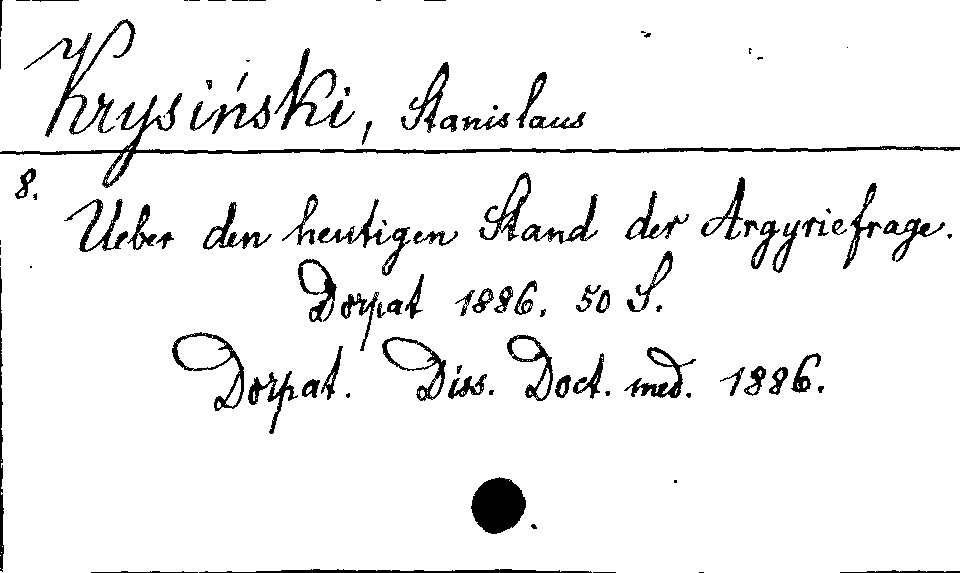 Krysiński, Stanislaus
8.
Ueber den heutigen Stand der Argyriefrage.
Dorpat 1886. 50 S.
Dorpat. Diss. Doct. med. 1886.